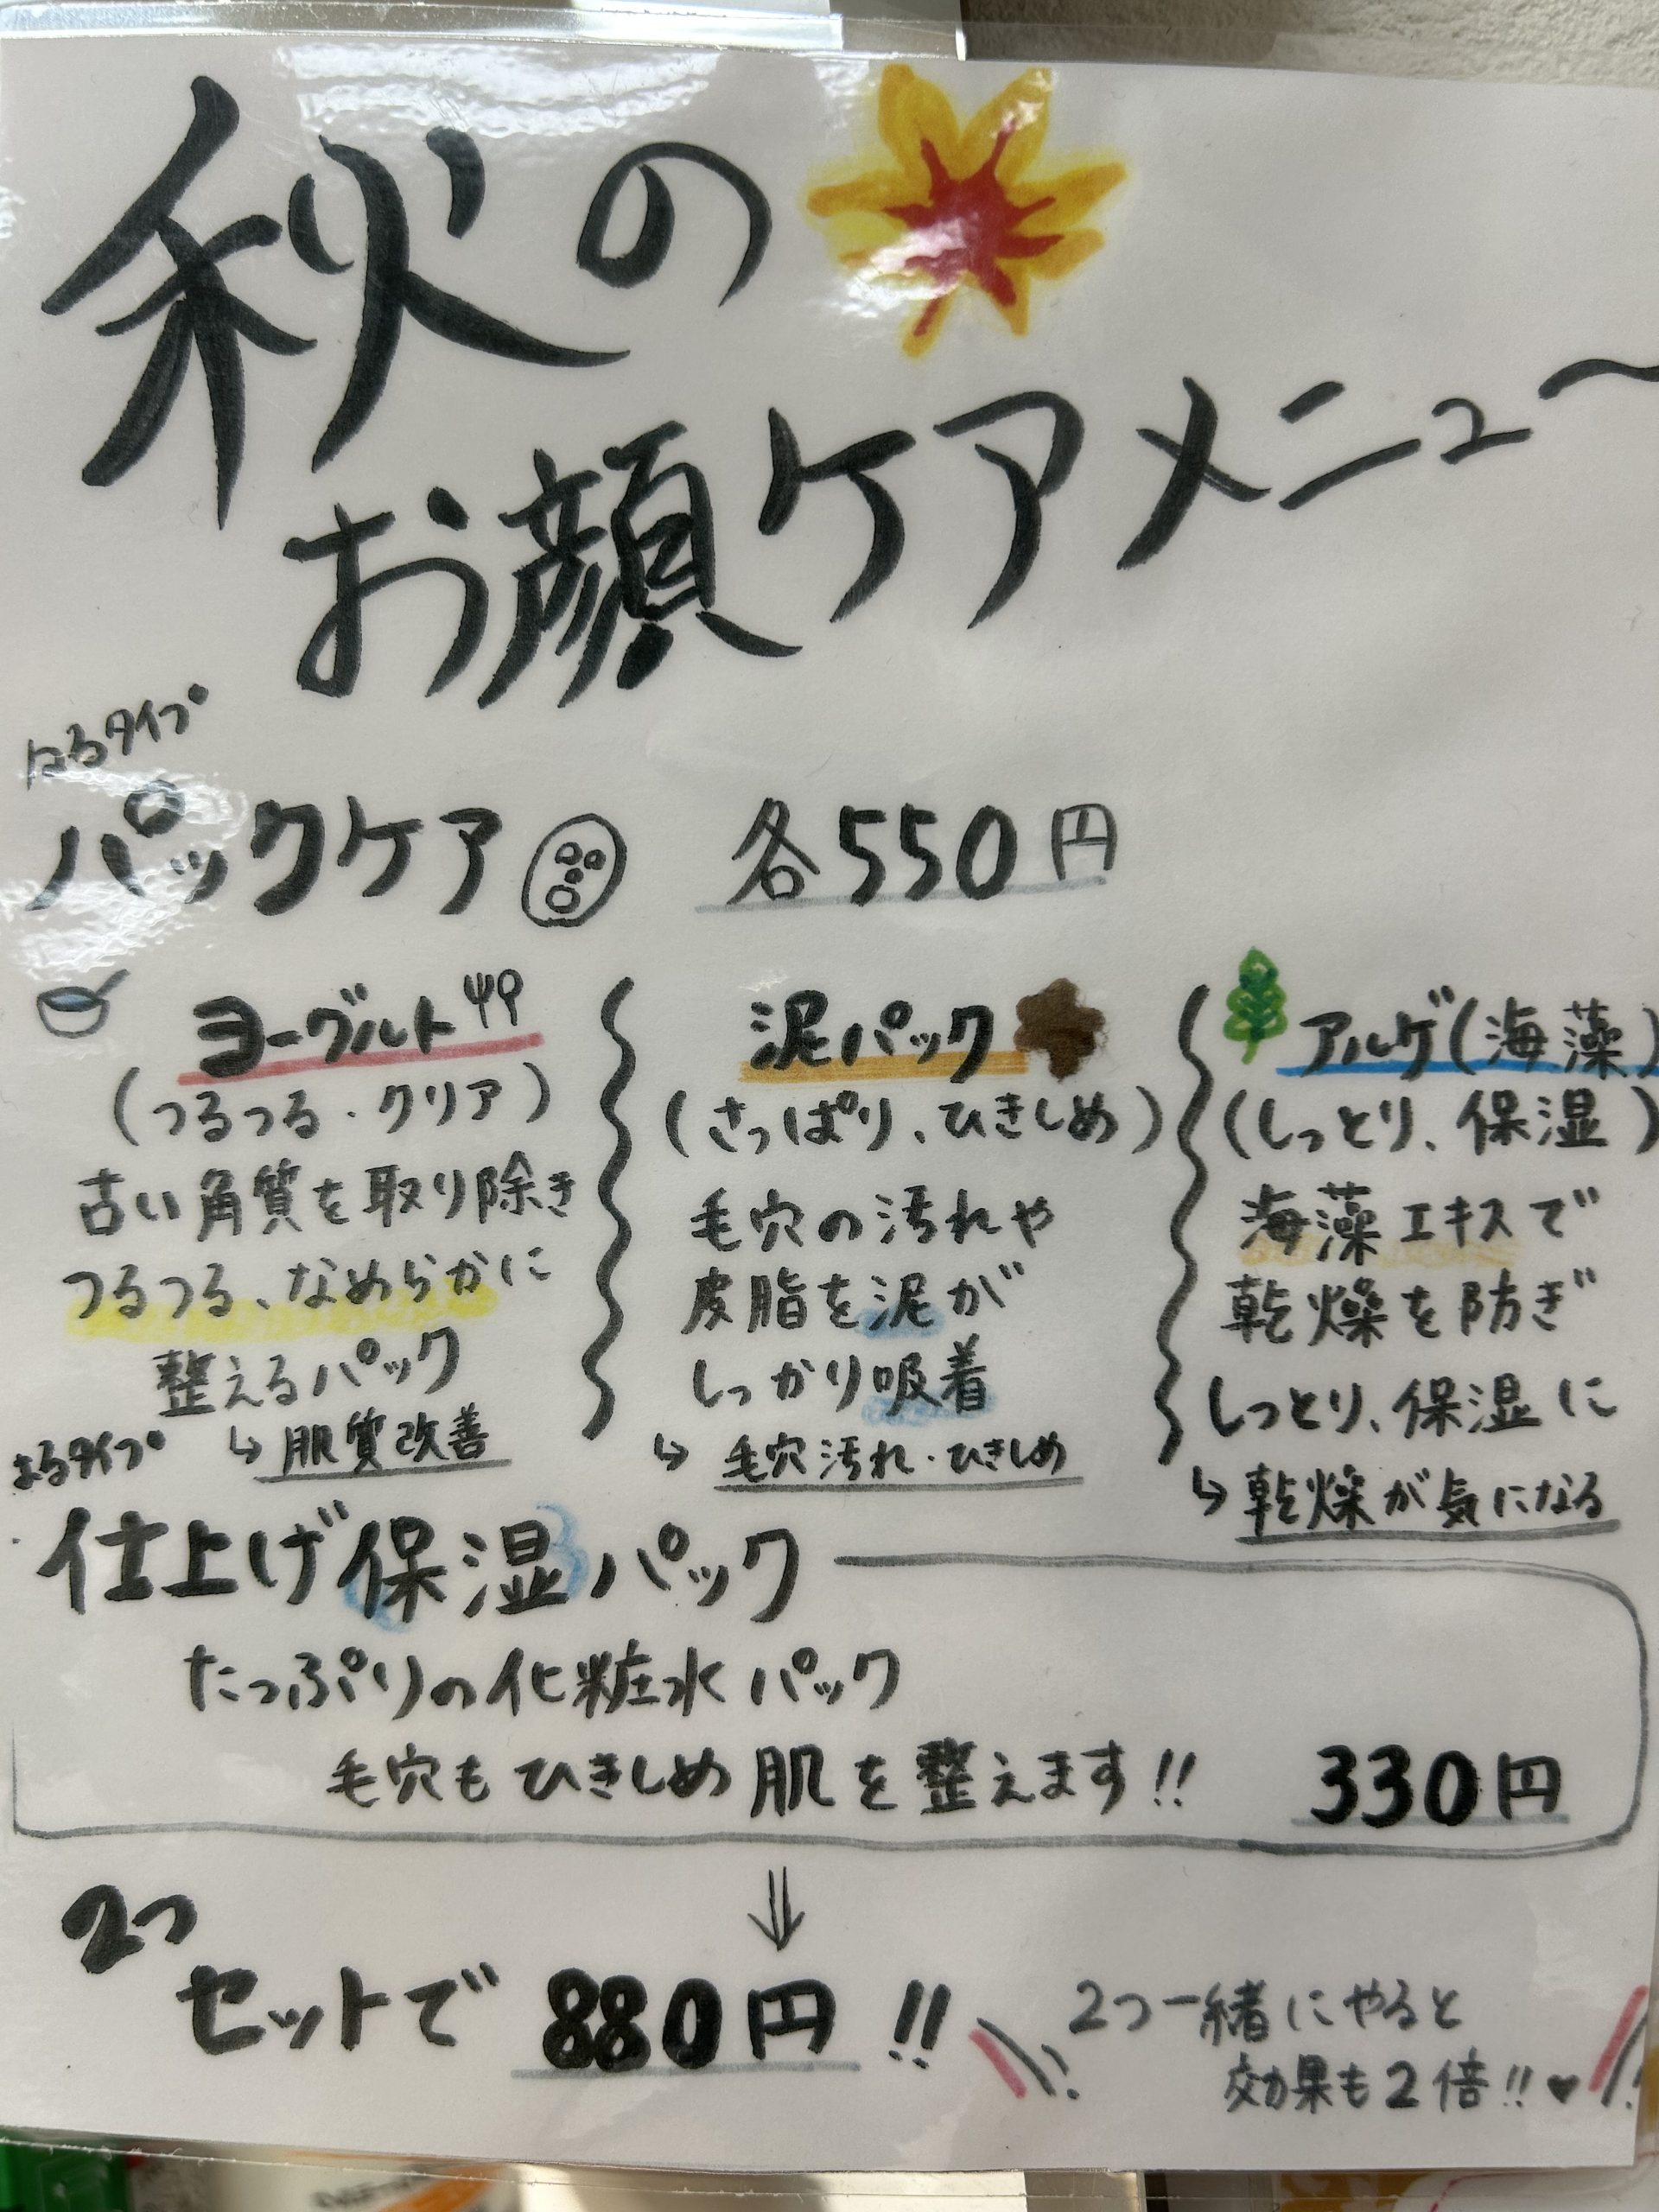 秋の
お顔ケアメニュ〜
はるタイプ
パックケア 各550円
ヨーグルト
(つるつる・クリア)
古い角質を取り除き
つるつる、なめらかに
整えるパック
↳ 肌質改善
泥パック
(さっぱり、ひきしめ)
毛穴の汚れや
皮脂を泥が
しっかり吸着
↳ 毛穴汚れ・ひきしめ
アルゲ(海藻)
(しっとり、保湿)
海藻エキスで
乾燥を防ぎ
しっとり、保湿に
↳ 乾燥が気になる
はるタイプ
仕上げ保湿パック
たっぷりの化粧水パック
毛穴もひきしめ肌を整えます!! 330円
⇓
2つ
セットで 880円!!
2つ一緒にやると
効果も2倍!!♥